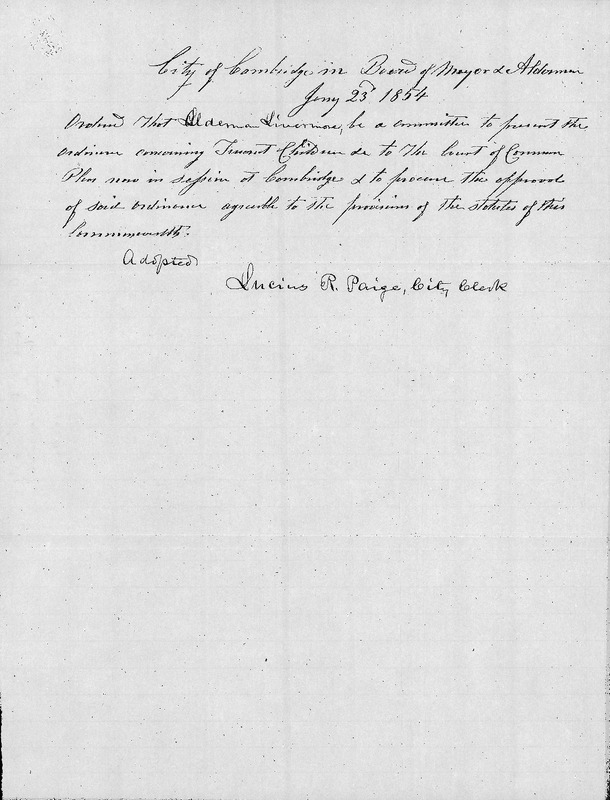 City of Cambridge in Board of Mayor & Aldermen
Jany 23d 1854
Ordered That Alderman Livermore, be a committee to present the
ordinance concerning Truant Children &c to the Court of Common
Pleas now in session at Cambridge & to procure the approval
of said ordinance agreeable to the provisions of the statutes of this
Commonwealth.
Adopted
Lucius R. Paige, City Clerk